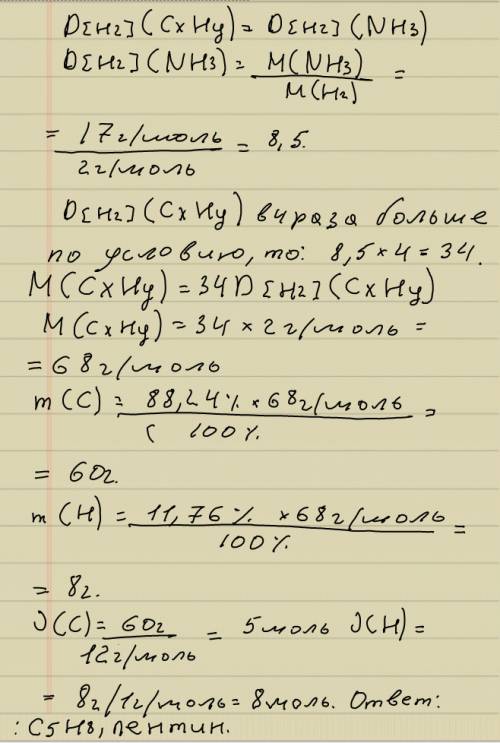 D[H2](CxHy) = D[H2](NH3)
D[H2](NH3) = M(NH3)/M(H2) =
= 17г/моль / 2г/моль = 8,5.
D[H2](CxHy) в 4 раза больше
по условию, то: 8,5 × 4 = 34.
M(CxHy) = 34 D[H2](CxHy)
M(CxHy) = 34 × 2г/моль =
= 68г/моль
m(C) = 88,24% × 68г/моль / 100% =
= 60г.
m(H) = 11,76% × 68г/моль / 100% =
= 8г.
J(C) = 60г / 12г/моль = 5моль J(H) =
= 8г/1г/моль = 8моль. Ответ:
: C5H8, пентин.